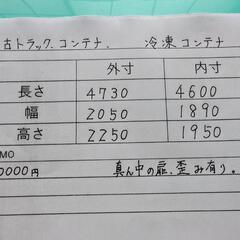 古トラック.コンテナ. 冷凍コンテナ
外寸 内寸
長さ 4730 4600
幅 2050 1890
高さ 2250 1950
MO
0000円 真ん中の扉、歪み有り。